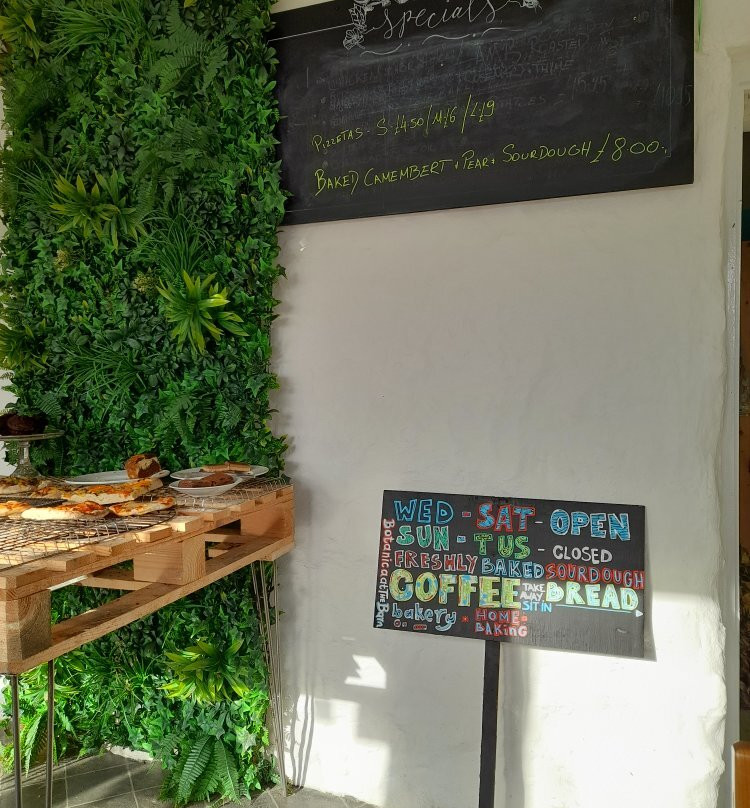 specials
PIZZETAS - S £4.50/M £6/L £9
BAKED CAMEMBERT + PEAR + SOURDOUGH £8.00.
WED - SAT - OPEN
SUN - TUS - CLOSED
FRESHLY BAKED SOURDOUGH
COFFEE TAKE AWAY SIT IN BREAD
bakery. HOME-BAKING
Botanica at The Barn